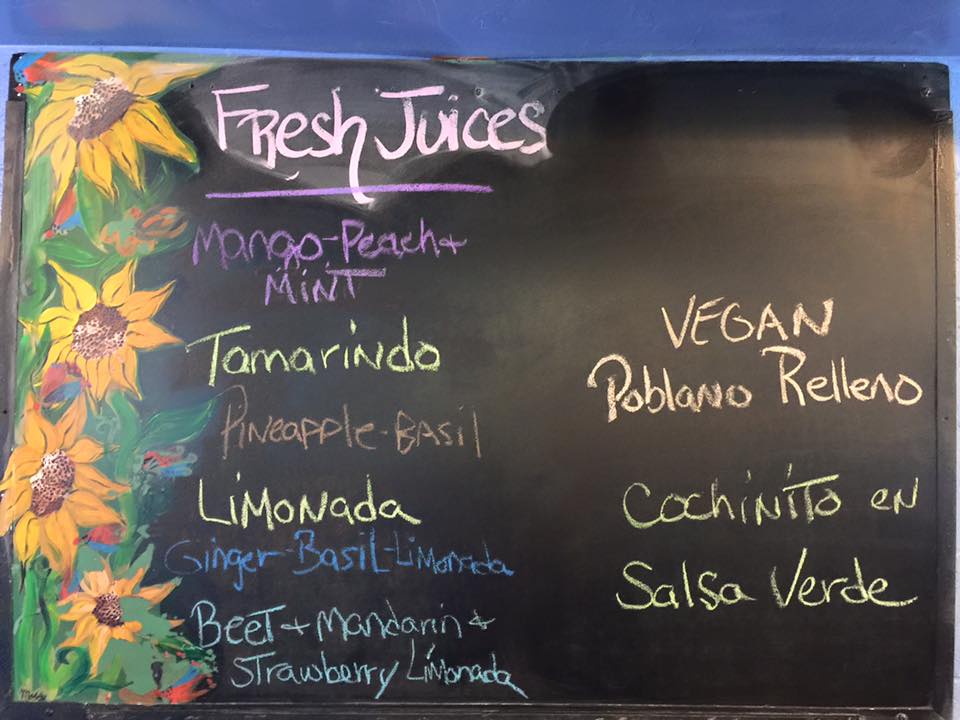 Fresh Juices
Mango-Peach +
Mint
Tamarindo
Pineapple-Basil
Limonada
Ginger-Basil-Limonada
Beet + Mandarin +
Strawberry Limonada
VEGAN
Poblano Relleno
Cochinito en
Salsa Verde